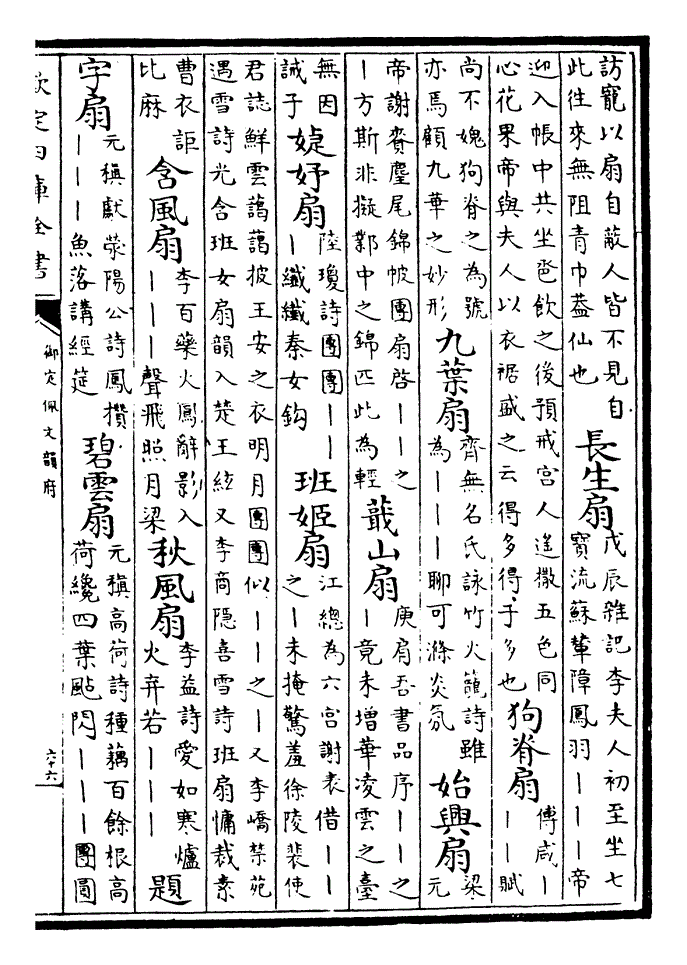 訪寵以扇自蔽人皆不見自
此往來無阻青巾蓋仙也
長生扇
戊辰雜記李夫人初至坐七
寶流蘇輦障鳳羽丨丨丨帝
迎入帳中共坐巹飲之後預戒宮人遙撒五色同
心花果帝與夫人以衣裾盛之云得多得子多也
狗脊扇
傅咸丨
丨丨賦
尚不媿狗脊之為號
亦焉顧九華之妙形
九葉扇
齊無名氏詠竹火籠詩雖
為丨丨丨聊可滌炎氛
始興扇
梁
元
帝謝賚麈尾錦帔團扇啓丨丨之
丨方斯非擬鄴中之錦匹此為輕
蕺山扇
庾肩吾書品序丨丨之
丨竟未增華凌雲之臺
無因
誠子
婕妤扇
陸瓊詩團團丨丨
丨纖纖秦女鈎
班姬扇
江總為六宮謝表借丨丨
之丨未掩驚羞徐陵裴使
君誌鮮雲藹藹披王安之衣明月團團似丨丨之丨又李嶠禁苑
遇雪詩光含班女扇韻入楚王絃又李商隱喜雪詩班扇慵裁素
曹衣詎
比麻
含風扇
李百藥火鳳辭影入
丨丨丨聲飛照月梁
秋風扇
李益詩愛如寒爐
火弃若丨丨丨
題
字扇
元稹獻滎陽公詩鳳攢
丨丨丨魚落講經筵
碧雲扇
元稹高荷詩種藕百餘根高
荷纔四葉颭閃丨丨丨團圓
欽定四庫全書
御定佩文韻府
六十六